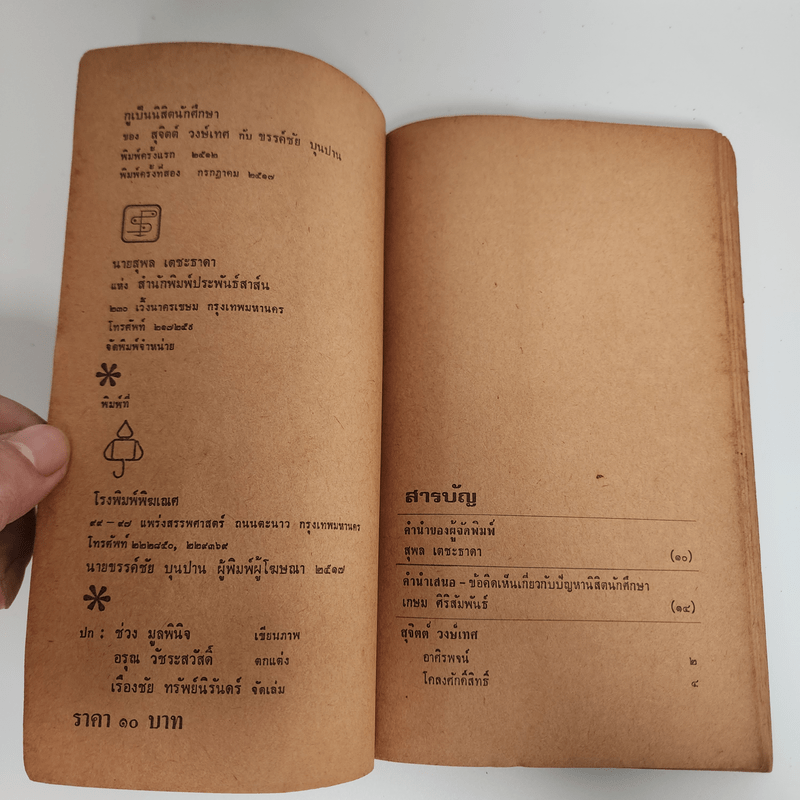 กูเป็นนิสิตนักศึกษา
ของ สุจิตต์ วงษ์เทศ กับ ขรรค์ชัย บุนปาน
พิมพ์ครั้งแรก ๒๕๑๒
พิมพ์ครั้งที่สอง กรกฎาคม ๒๕๑๗
นายสุพล เตชะธาดา
แห่ง สำนักพิมพ์ประพันธ์สาส์น
๒๓๐ เวิ้งนาครเขษม กรุงเทพมหานคร
โทรศัพท์ ๒๑๘๒๕๙
จัดพิมพ์จำหน่าย
*
พิมพ์ที่
โรงพิมพ์พิฆเณศ
๙๙ – ๙๗ แพร่งสรรพศาสตร์ ถนนตะนาว กรุงเทพมหานคร
โทรศัพท์ ๒๒๒๘๕๐, ๒๒๙๓๖๙
นายขรรค์ชัย บุนปาน ผู้พิมพ์ผู้โฆษณา ๒๕๑๗
*
ปก : ช่วง มูลพินิจ เขียนภาพ
อรุณ วัชระสวัสดิ์ ตกแต่ง
เรืองชัย ทรัพย์นิรันดร์ จัดเล่ม
ราคา ๑๐ บาท
สารบัญ
คำนำของผู้จัดพิมพ์
สุพล เตชะธาดา (๑๐)
คำนำเสนอ – ข้อคิดเห็นเกี่ยวกับปัญหานิสิตนักศึกษา
เกษม ศิริสัมพันธ์ (๑๔)
สุจิตต์ วงษ์เทศ
อาศิรพจน์ ๒
โคลงศักดิ์สิทธิ์ ๔